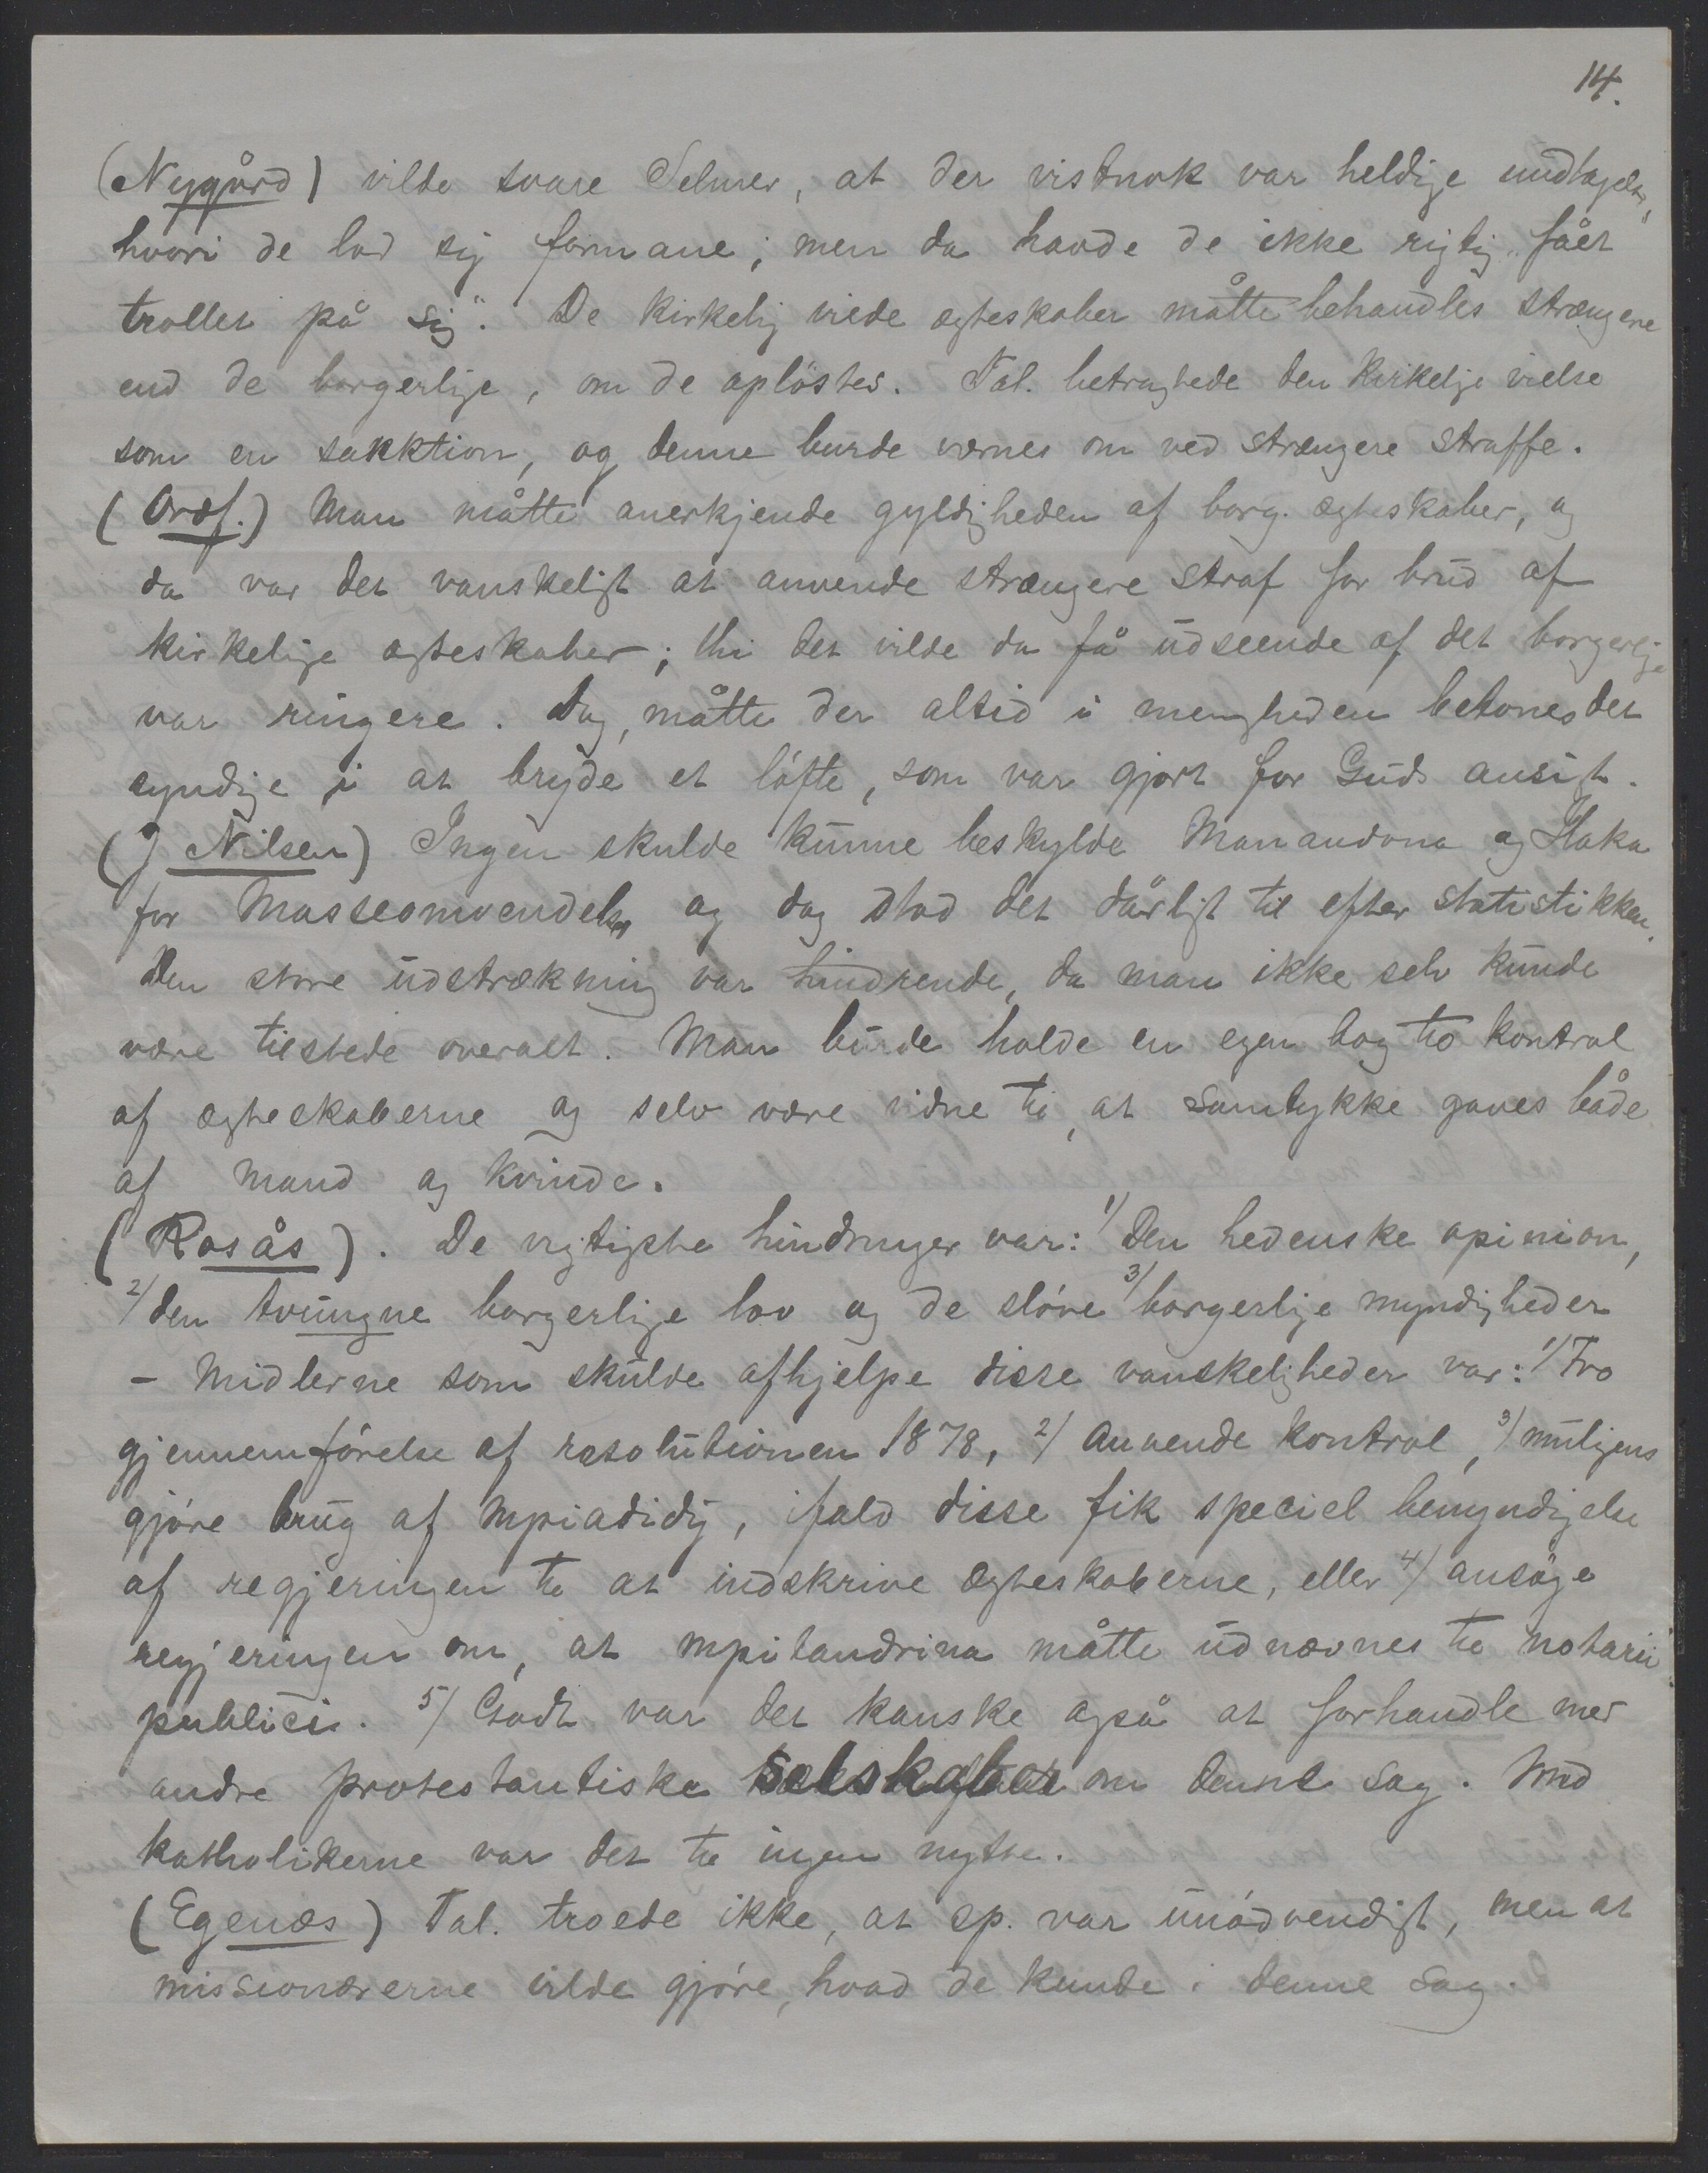 14.
(Nygård) vilde svare Selmer, at der vistnok var heldige undtagelser,
hvori de lod sig formane; men da havde de ikke rigtig "fået
trollet på sig". De kirkelig viede ægteskaber måtte behandles strængere
end de borgerlige, om de opløstes. Tal. betragtede den kirkelige vielse
som en sakktion, og denne burde værnes om ved strængere straffe.
(Ordf.) Man måtte anerkjende gyldigheden af borg. ægteskaber, og
da var det vanskeligt at anvende strængere straf for brud af
kirkelige ægteskaber; thi det vilde da få udseende af det borgerlige
var ringere. Dog, måtte der altid i menigheden betones det
syndige i at bryde et løfte, som var gjort for Guds ansigt.
(J Nilsen) Ingen skulde kunne beskylde Manandona og Ilaka
for Masseomvendelser og dog stod det dårligt til efter statistikken.
Den store udstrækning var hindrende, da man ikke selv kunde
være tilstede overalt. Man burde holde en egen bog til kontrol
af ægteskaberne og selv være vidne til, at samtykke gaves både
af mand og kvinde.
(Rosås). De vigtigste hindringer var: 1/ Den hedenske opinion,
2/ den tvungne borgerlige lov og de sløve 3/ borgerlige myndigheder
- Midlerne som skulde afhjelpe disse vanskeligheder var: 1/ Tro
gjennemførelse af resolutionen 1878, 2/ Anvende kontrol, 3/ muligens
gjøre brug af Mpiadidy, ifald disse fik speciel bemyndigelse
af regjeringen til at indskrive ægteskaberne, eller 4/ ansøge
regjeringen om, at mpitandrina måtte udnævnes til notarii
publicii. 5/ Godt var det kanske også at forhandle med
andre protestantiske selskaber om denne sag. Med
katholikerne var det til ingen nytte.
(Egenæs) Tal. troede ikke, at sp. var unødvendigt, men at
missionærerne vilde gjøre, hvad de kunde i denne sag.